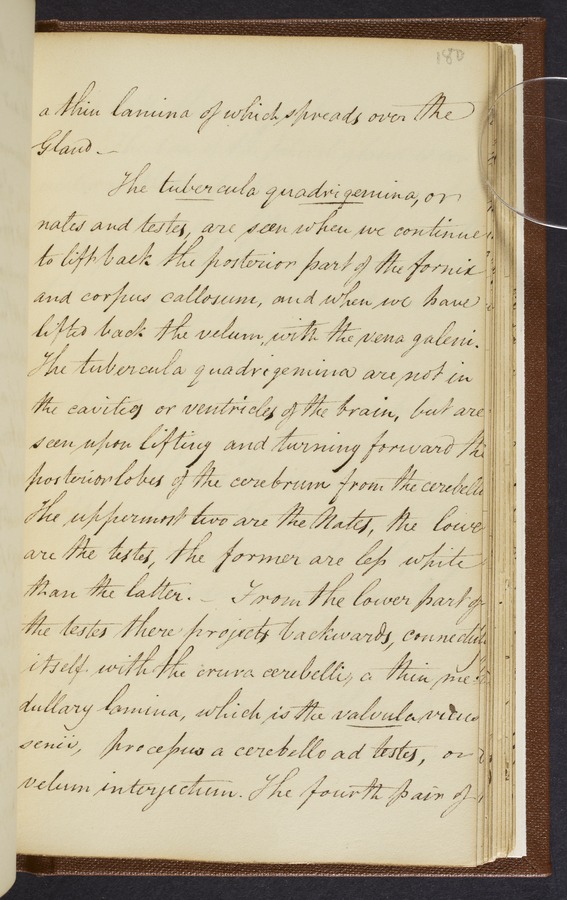 180
a thin lamina of which spreads over the
Gland —
The tubercula quadrigemina, or
nates and testes, are seen when we continue
to lift back the posterior part of the fornix
and corpus callosum, and when we have
lifted back the velum, with the vena galeni.
The tubercula quadrigemina are not in
the cavities or ventricles of the brain, but are
seen upon lifting and turning forward the
posterior lobes of the cerebrum from the cerebell
The uppermost two are the Nates, the lowe
are the testes, the former are less white
than the latter. — From the lower part of
the testes there projects backwards, connecti
itself with the crura cerebelli, a thin me
dullary lamina, which is the valvula vieus
senii, processus a cerebello ad testes, or
velum interjectum. The fourth pair of